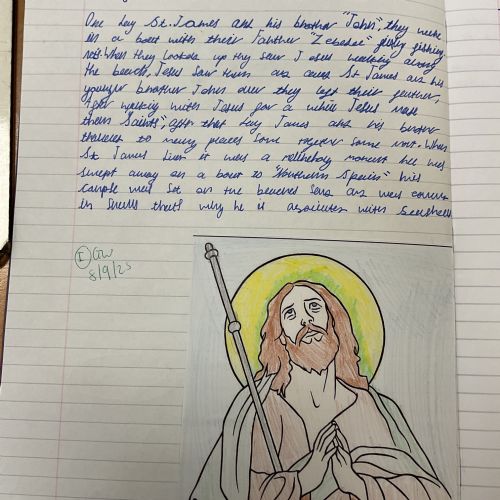 One day St. James and his brother "John", they were
in a boat with their Fahther "Zebedee" fishing
nets. When they Looked up they saw Jesus walking along
the beach, Jesus saw them and St James and his
younger brother John and they left their father,
After walking with Jesus for a while Jesus made
them "Saints", after that day James and his brother
traveled to many places some together some not. When
St James it was a moment he was
swept away on a boat to "Northern Spain" his
on the beaches and was
in Shells thats why he is with Seashells
I GW
8/9/25